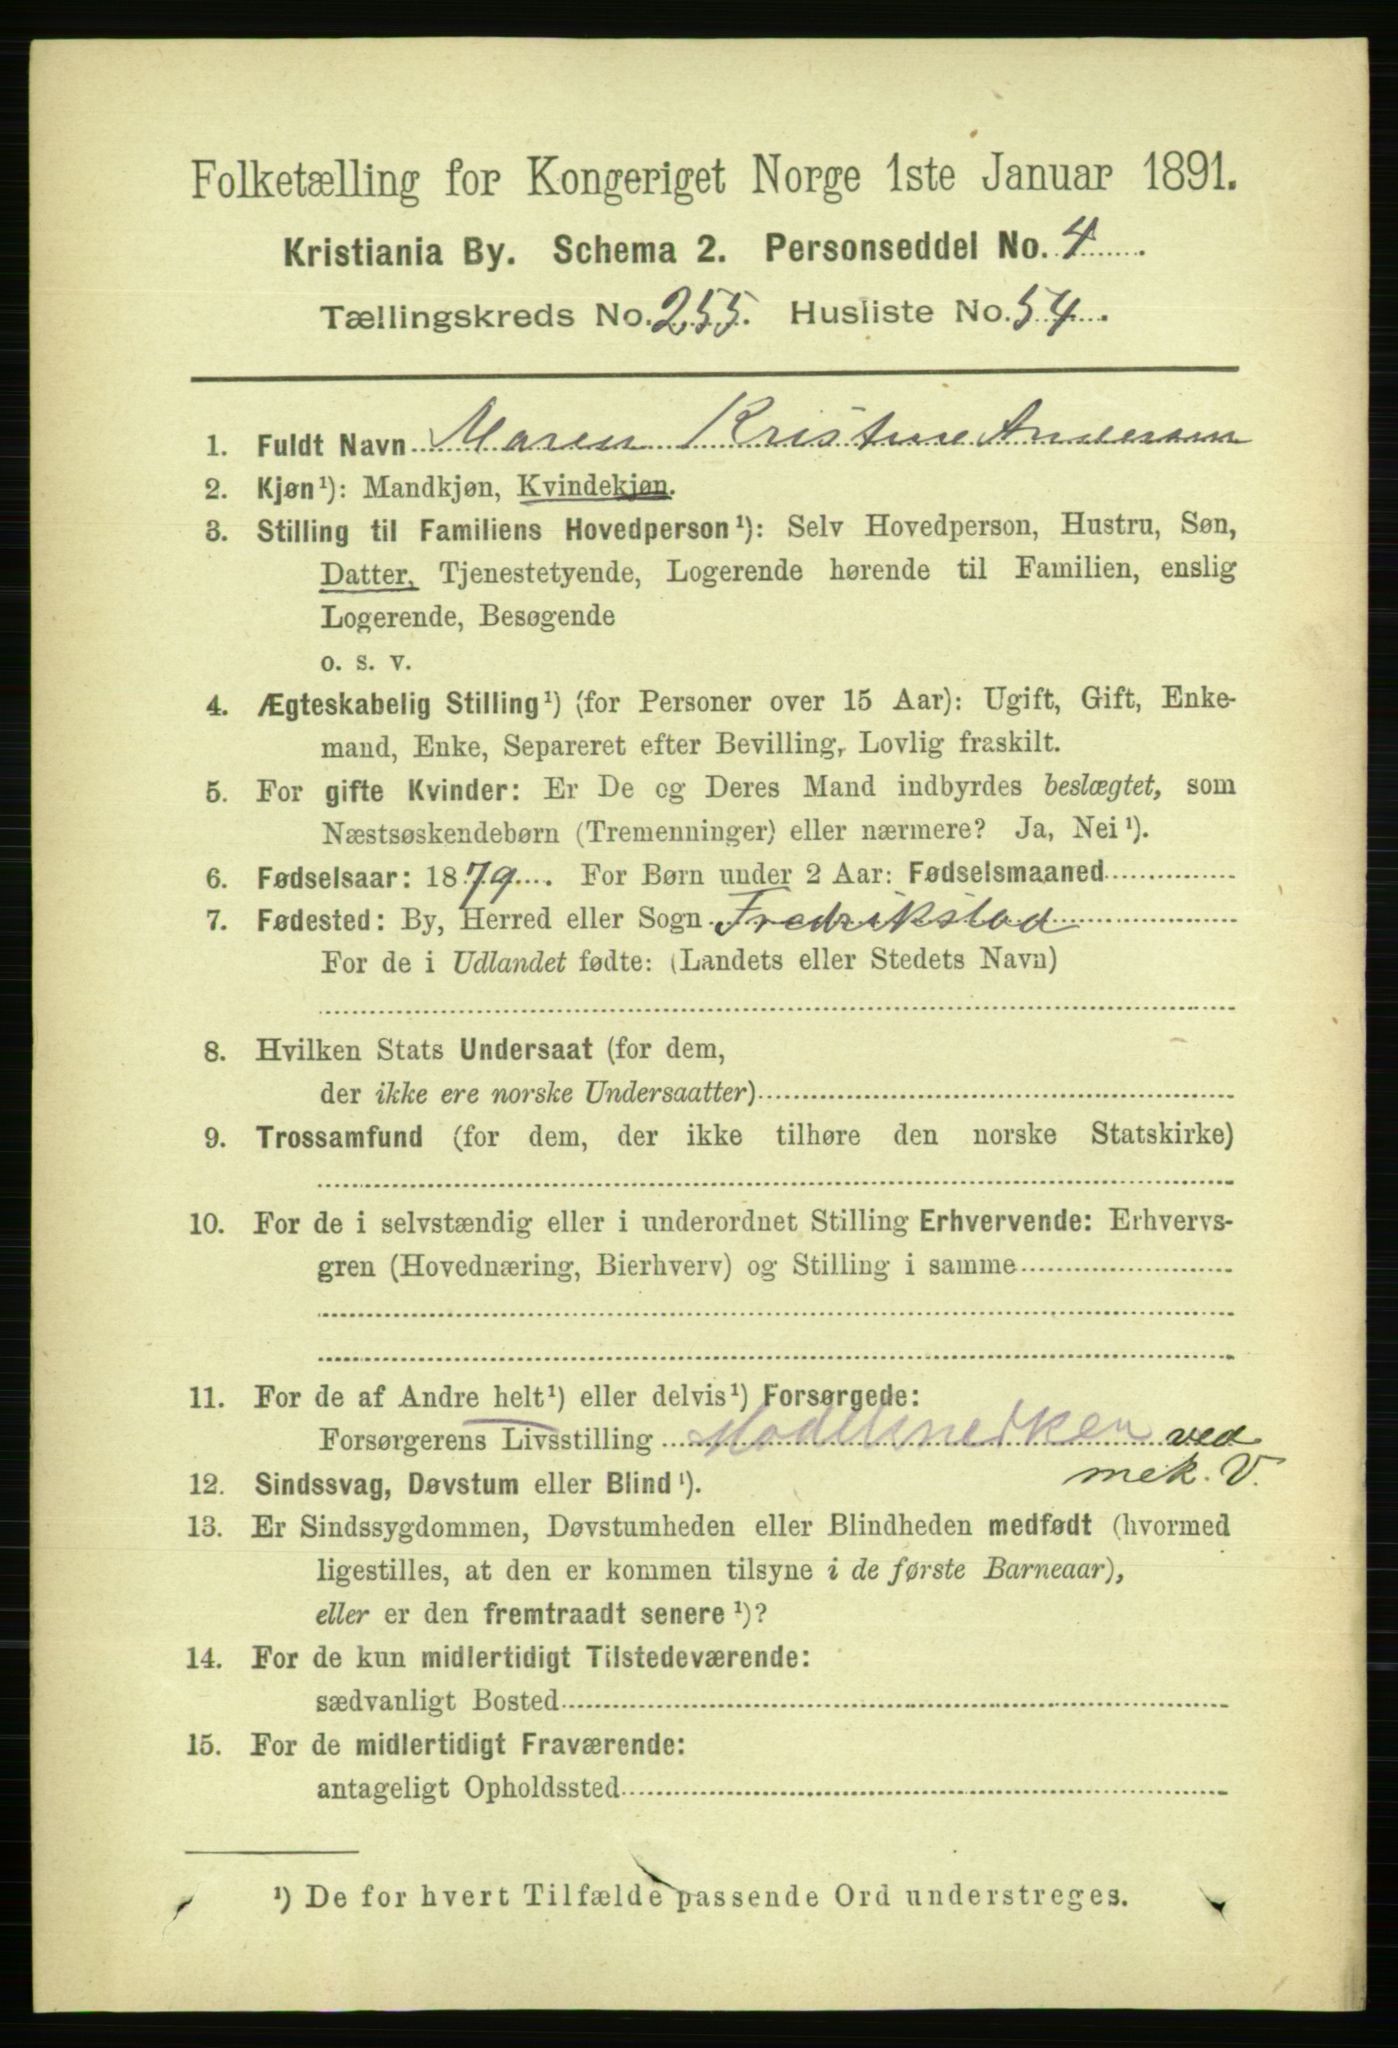 Folketælling for Kongeriget Norge 1ste Januar 1891.
Kristiania By. Schema 2. Personseddel No. 4
Tællingskreds No. 255. Husliste No. 54.
1. Fuldt Navn Maren Kristine Andersen
2. Kjøn¹): Mandkjøn, Kvindekjøn.
3. Stilling til Familiens Hovedperson¹): Selv Hovedperson, Hustru, Søn,
Datter, Tjenestetyende, Logerende hørende til Familien, enslig
Logerende, Besøgende
o. s. v.
4. Ægteskabelig Stilling¹) (for Personer over 15 Aar): Ugift, Gift, Enke-
mand, Enke, Separeret efter Bevilling, Lovlig fraskilt.
5. For gifte Kvinder: Er De og Deres Mand indbyrdes beslægtet, som
Næstsøskendebørn (Tremenninger) eller nærmere? Ja, Nei¹).
6. Fødselsaar: 1879. For Børn under 2 Aar: Fødselsmaaned
7. Fødested: By, Herred eller Sogn Fredrikstad
For de i Udlandet fødte: (Landets eller Stedets Navn)
8. Hvilken Stats Undersaat (for dem,
der ikke ere norske Undersaatter)
9. Trossamfund (for dem, der ikke tilhøre den norske Statskirke)
10. For de i selvstændig eller i underordnet Stilling Erhvervende: Erhvervs-
gren (Hovednæring, Bierhverv) og Stilling i samme
11. For de af Andre helt¹) eller delvis¹) Forsørgede:
Forsørgerens Livsstilling Modelsnedker ved
mek. V.
12. Sindssvag, Døvstum eller Blind¹).
13. Er Sindssygdommen, Døvstumheden eller Blindheden medfødt (hvormed
ligestilles, at den er kommen tilsyne i de første Barneaar),
eller er den fremtraadt senere¹)?
14. For de kun midlertidigt Tilstedeværende:
sædvanligt Bosted
15. For de midlertidigt Fraværende:
antageligt Opholdssted
¹) De for hvert Tilfælde passende Ord understreges.